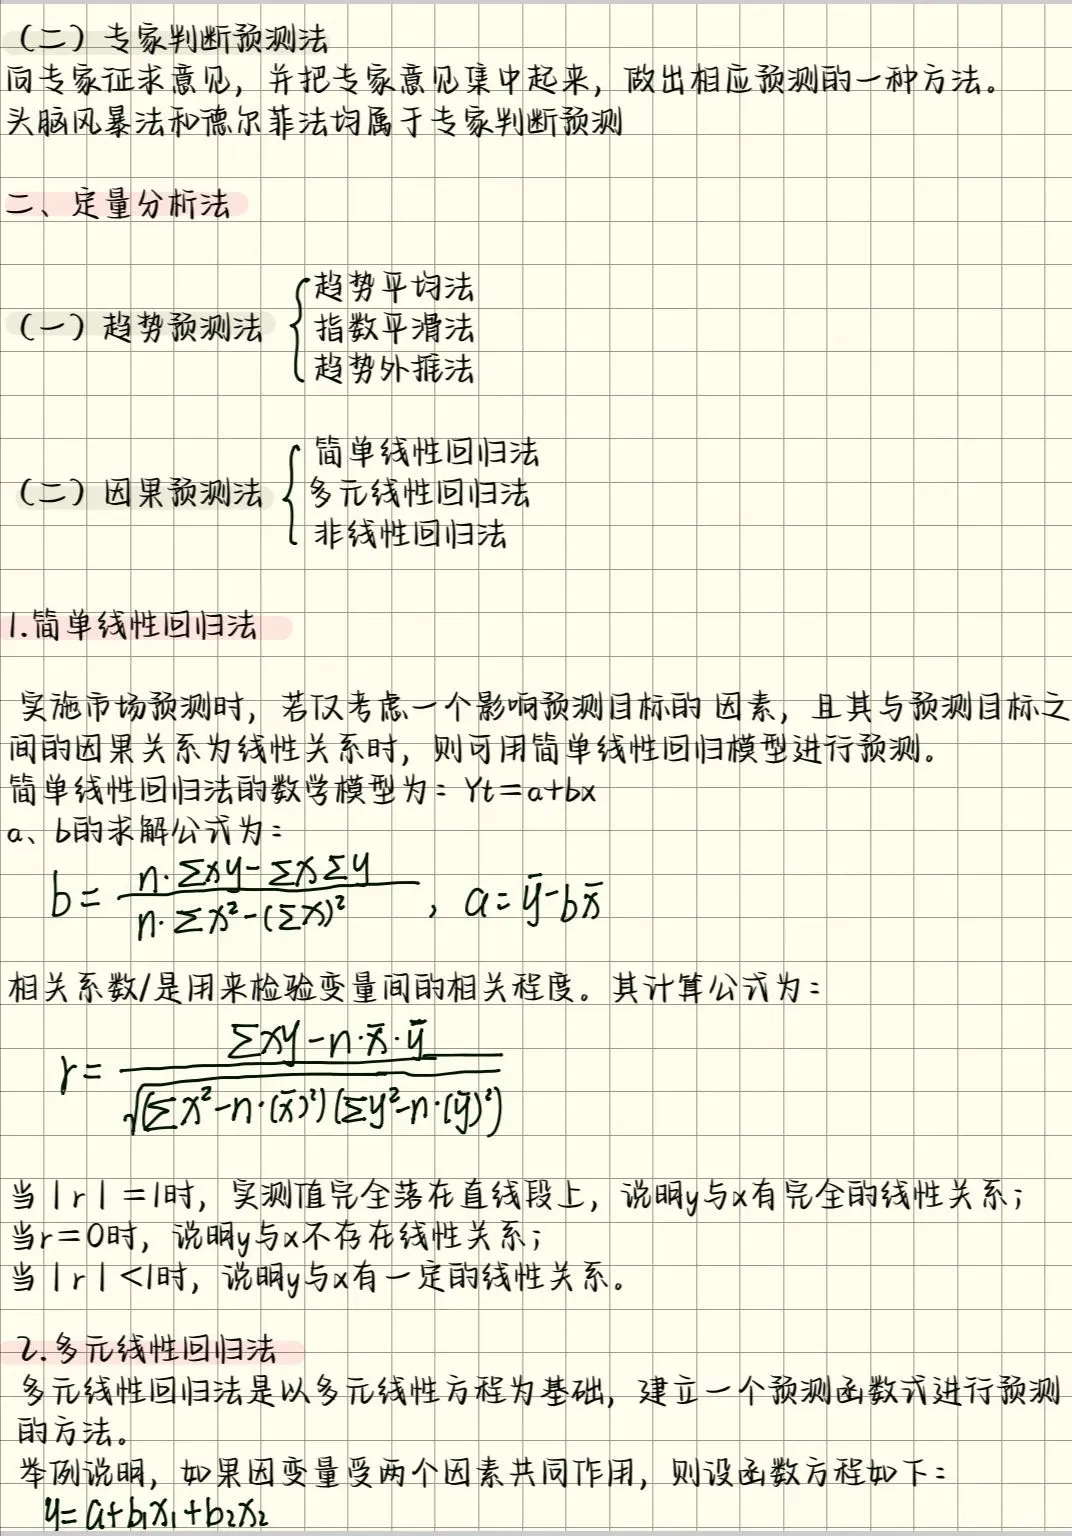 （二）专家判断预测法
向专家征求意见，并把专家意见集中起来，做出相应预测的一种方法。
头脑风暴法和德尔菲法均属于专家判断预测
二、定量分析法
（一）趋势预测法
趋势平均法
指数平滑法
趋势外推法
（二）因果预测法
简单线性回归法
多元线性回归法
非线性回归法
1.简单线性回归法
实施市场预测时，若仅考虑一个影响预测目标的 因素，且其与预测目标之
间的因果关系为线性关系时，则可用简单线性回归模型进行预测。
简单线性回归法的数学模型为：Yt=a+bx
a、b的求解公式为：
b = (n·Σxy − ΣxΣy) / (n·Σx² − (Σx)²) ，a = ȳ − bx̄
相关系数/是用来检验变量间的相关程度。其计算公式为：
r = (Σxy − n·x̄·ȳ) / √(Σx² − n·(x̄)²)(Σy² − n·(ȳ)²)
当｜r｜=1时，实测值完全落在直线段上，说明y与x有完全的线性关系；
当r=0时，说明y与x不存在线性关系；
当｜r｜<1时，说明y与x有一定的线性关系。
2.多元线性回归法
多元线性回归法是以多元线性方程为基础，建立一个预测函数式进行预测
的方法。
举例说明，如果因变量受两个因素共同作用，则设函数方程如下：
y=a+b₁x₁+b₂x₂